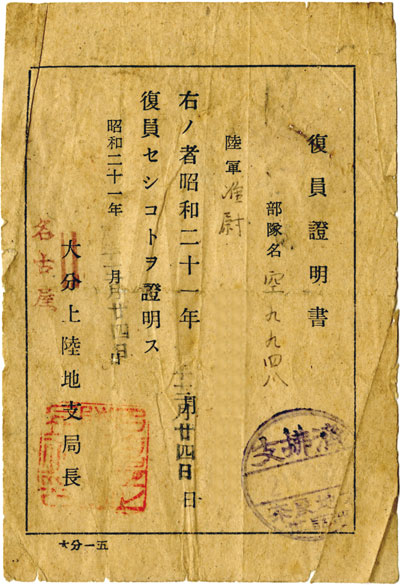 復員證明書
部隊名 空九九四八
陸軍准尉
右ノ者昭和二十一年 二月廿四日 日
復員セシコトヲ證明ス
昭和二十一年 月廿四日 日
大分上陸地支局長
名古屋
支排済
大分一五